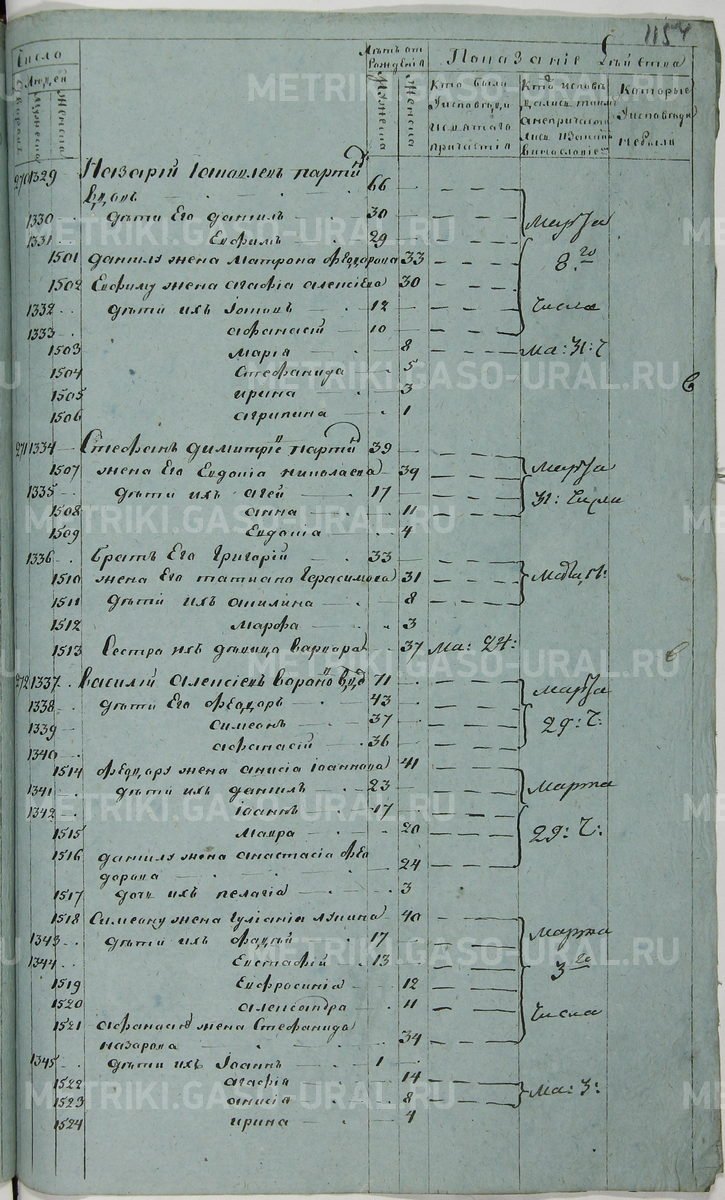 1154
Число
Людей
Дворовъ
Мужеска
Женска
Лѣтъ отъ рожденія
Мужеска
Женска
Показаніе
Кто были у исповѣди и святаго причастія
Которые у исповѣди не были
270 1329 Назарій партій
вдовъ 66
1330 дѣти Его данилъ 30
1331 Евфимъ 29
1501 данилу жена Матрона Федорова 33
1502 Евфиму жена агафія алексіева 30
1332 дѣти ихъ 12
1333 афанасій 10
1503 марія 8
1504 Стефанида 5
1505 ирина 3
1506 агрипина 1
Марта
8го
Числа
Ма: 31: Ч
271 1334 Стефанъ димитріе партій 39
1507 жена Его Евдокія николаева 39
1335 дѣти ихъ агей 17
1508 анна 11
1509 Евдокія 4
Марта
31: Числа
1336 Братъ Его Григорій 33
1510 жена Его татиана Герасимова 31
1511 дѣти ихъ акилина 8
1512 марфа 3
1513 Сестра ихъ дѣвица варвара 37 Ма: 24:
272 1337 василій алексіевъ вдов 71
1338 дѣти Его Феодоръ 43
1339 симеонъ 37
1340 афанасій 36
Марта
29: Ч:
1514 Феодору жена анисія іоаннова 41
1341 дѣти ихъ данилъ 23
1342 іоаннъ 17
1515 мавра 20
1516 данилу жена анастасія Фео
дорова 24
1517 дочь ихъ пелагія 3
Марта
29: Ч:
1518 Симеону жена Іуліанія лукина 40
1343 дѣти ихъ Фадей 17
1344 Евстафій 13
1519 Евфросинія 12
1520 александра 11
1521 афанасію жена Стефанида
назарова 34
Марта
3го
Числа
1345 дѣти ихъ Іоаннъ 1
1522 агафія 14
1523 анисія 8
1524 ирина 4
Ма: 3:
METRIKI.GASO-URAL.RU